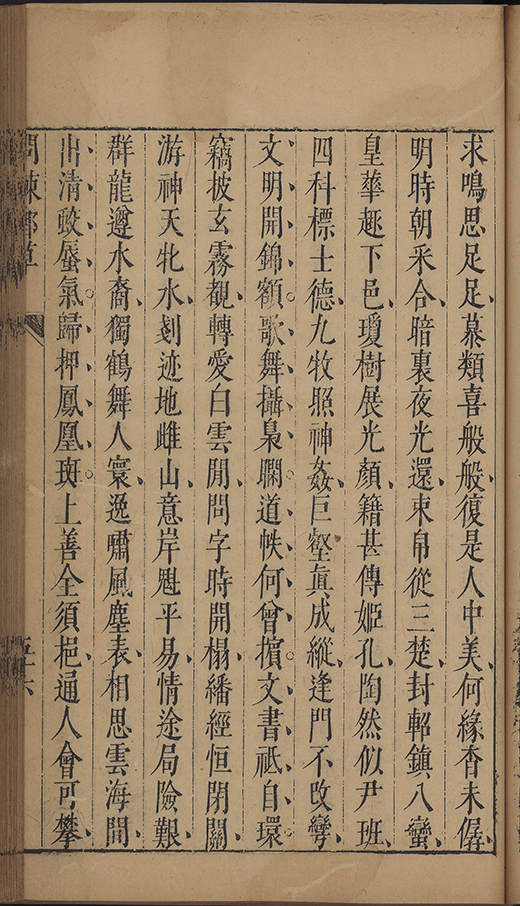 求鳴思足足慕類喜般般復是人中美何緣杳未僝
明時朝采合暗裏夜光還束帛從三楚封軺鎮八蠻
皇蕐趣下邑瓊樹展光顏籍甚傳姬孔陶然似尹班
四科標士德九牧照神姦巨壑眞成縱逢門不改彎
文明開錦額歌舞攝梟瞷道帙何曾擯文書祗自環
竊披玄霧覩轉愛白雲閒問字時開榻繙經恒閉關
游神天牝水剗迹地雌山意岸尠平易情途局險艱
群龍遵水裔獨鶴舞人寰逸嘯風塵表相思雲海間
出清蛟蜃氣歸押鳳凰斑上善全須挹通人會可攀
問棘郵草 五十六